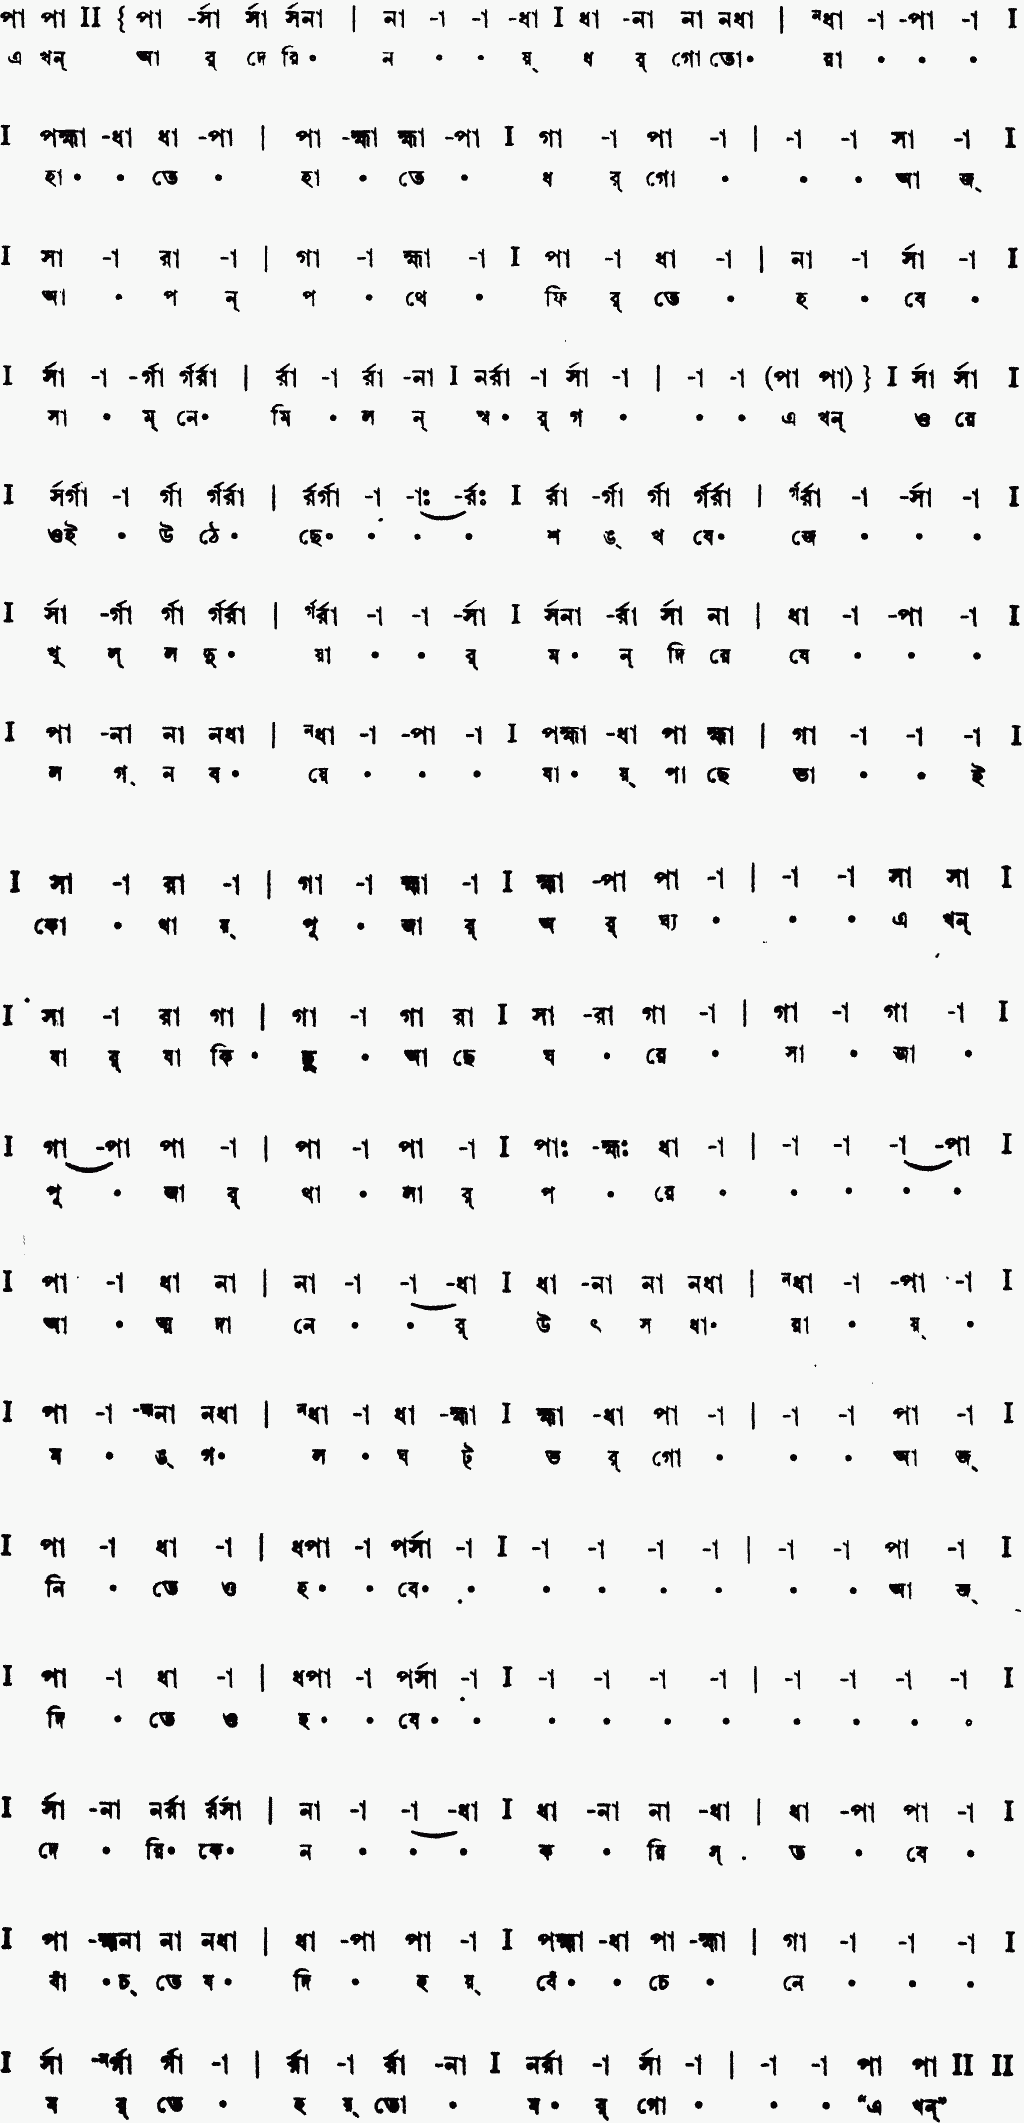 পা পা II { পা -র্সা র্সা র্সনা | না -া -া -ধা I ধা -না না নধা | ⁿধা -া -পা -া I
এ খন্ আ র্ দে রি• ন • • য়্ ধ র্ গো তো• রা • • •
I পহ্মা -ধা ধা -পা | পা -হ্মা হ্মা -পা I গা -া পা -া | -া -া সা -া I
হা• • তে • হা • তে • ধ র্ গো • • • আ জ্
I সা -া রা -া | গা -া হ্মা -া I পা -া ধা -া | না -া র্সা -া I
আ • প ন্ প • থে • ফি র্ তে • হ • বে •
I র্সা -া -র্গা র্গর্রা | র্রা -া র্রা -না I নর্রা -া র্সা -া | -া -া (পা পা) } I র্সা র্সা I
সা • ম্ নে• মি • ল ন্ স্ব• র্ গ • • • এ খন্ ও রে
I র্সর্গা -া র্গা র্গর্রা | র্রর্গা -া -াঃ -র্রঃ I র্রা -র্গা র্গা র্গর্রা | র্গর্রা -া -র্সা -া I
ওই • উ ঠে• ছে• • • • শ ঙ্ খ বে• জে • • •
I র্সা -র্গা র্গা র্গর্রা | র্গর্রা -া -া -র্সা I র্সনা -র্রা র্সা না | ধা -া -পা -া I
খু ল্ ল দু• য়া • • র্ ম• ন্ দি রে যে • • •
I পা -না না নধা | নধা -া -পা -া I পহ্মা -ধা পা হ্মা | গা -া -া -া I
ল গ্ ন ব• য়ে • • • যা• য়্ পা ছে ভা • • ই
I সা -া রা -া | গা -া হ্মা -া I হ্মা -পা পা -া | -া -া সা সা I
কো • থা য়্ পূ • জা র্ অ র্ ঘ্য • • • এ খন্
I সা -া রা গা | গা -া গা রা I সা -রা গা -া | গা -া গা -া I
যা র্ যা কি • ছু • আ ছে ঘ • রে • সা • জা •
I গা -পা পা -া | পা -া পা -া I পাঃ -হ্মঃ ধা -া | -া -া -া -পা I
পূ • জা র্ থা • লা র্ প • রে • • • • •
I পা -া ধা না | না -া -া -ধা I ধা -না না নধা | নধা -া -পা -া I
আ • ত্ম দা নে • • র্ উ ৎ স ধা• রা • য়্ •
I পা -া -হ্মনা নধা | নধা -া ধা -হ্মা I হ্মা -ধা পা -া | -া -া পা -া I
ম • ঙ্ গ• ল • ঘ ট্ ভ র্ গো • • • আ জ্
I পা -া ধা -া | ধপা -া পর্সা -া I -া -া -া -া | -া -া পা -া I
নি • তে ও হ• • বে• • • • • • • • আ জ্
I পা -া ধা -া | ধপা -া পর্সা -া I -া -া -া -া | -া -া -া -া I
দি • তে ও হ• • বে• • • • • • • • • •
I র্সা -না নর্রা র্রর্সা | না -া -া -ধা I ধা -না না -ধা | ধা -পা পা -া I
দে • রি• কে• ন • • • ক • রি স্ • ত • বে •
I পা -হ্মনা না নধা | ধা -পা পা -া I পহ্মা -ধা পা -হ্মা | গা -া -া -া I
বাঁ • চ্ তে য• দি • হ য়্ বেঁ• • চে • নে • • •
I র্সা -নর্গা র্গা -া | র্রা -া র্রা -না I নর্রা -া র্সা -া | -া -া পা পা II II
ম র্ তে • হ য়্ তো • ম• র্ গো • • • “এ খন্”